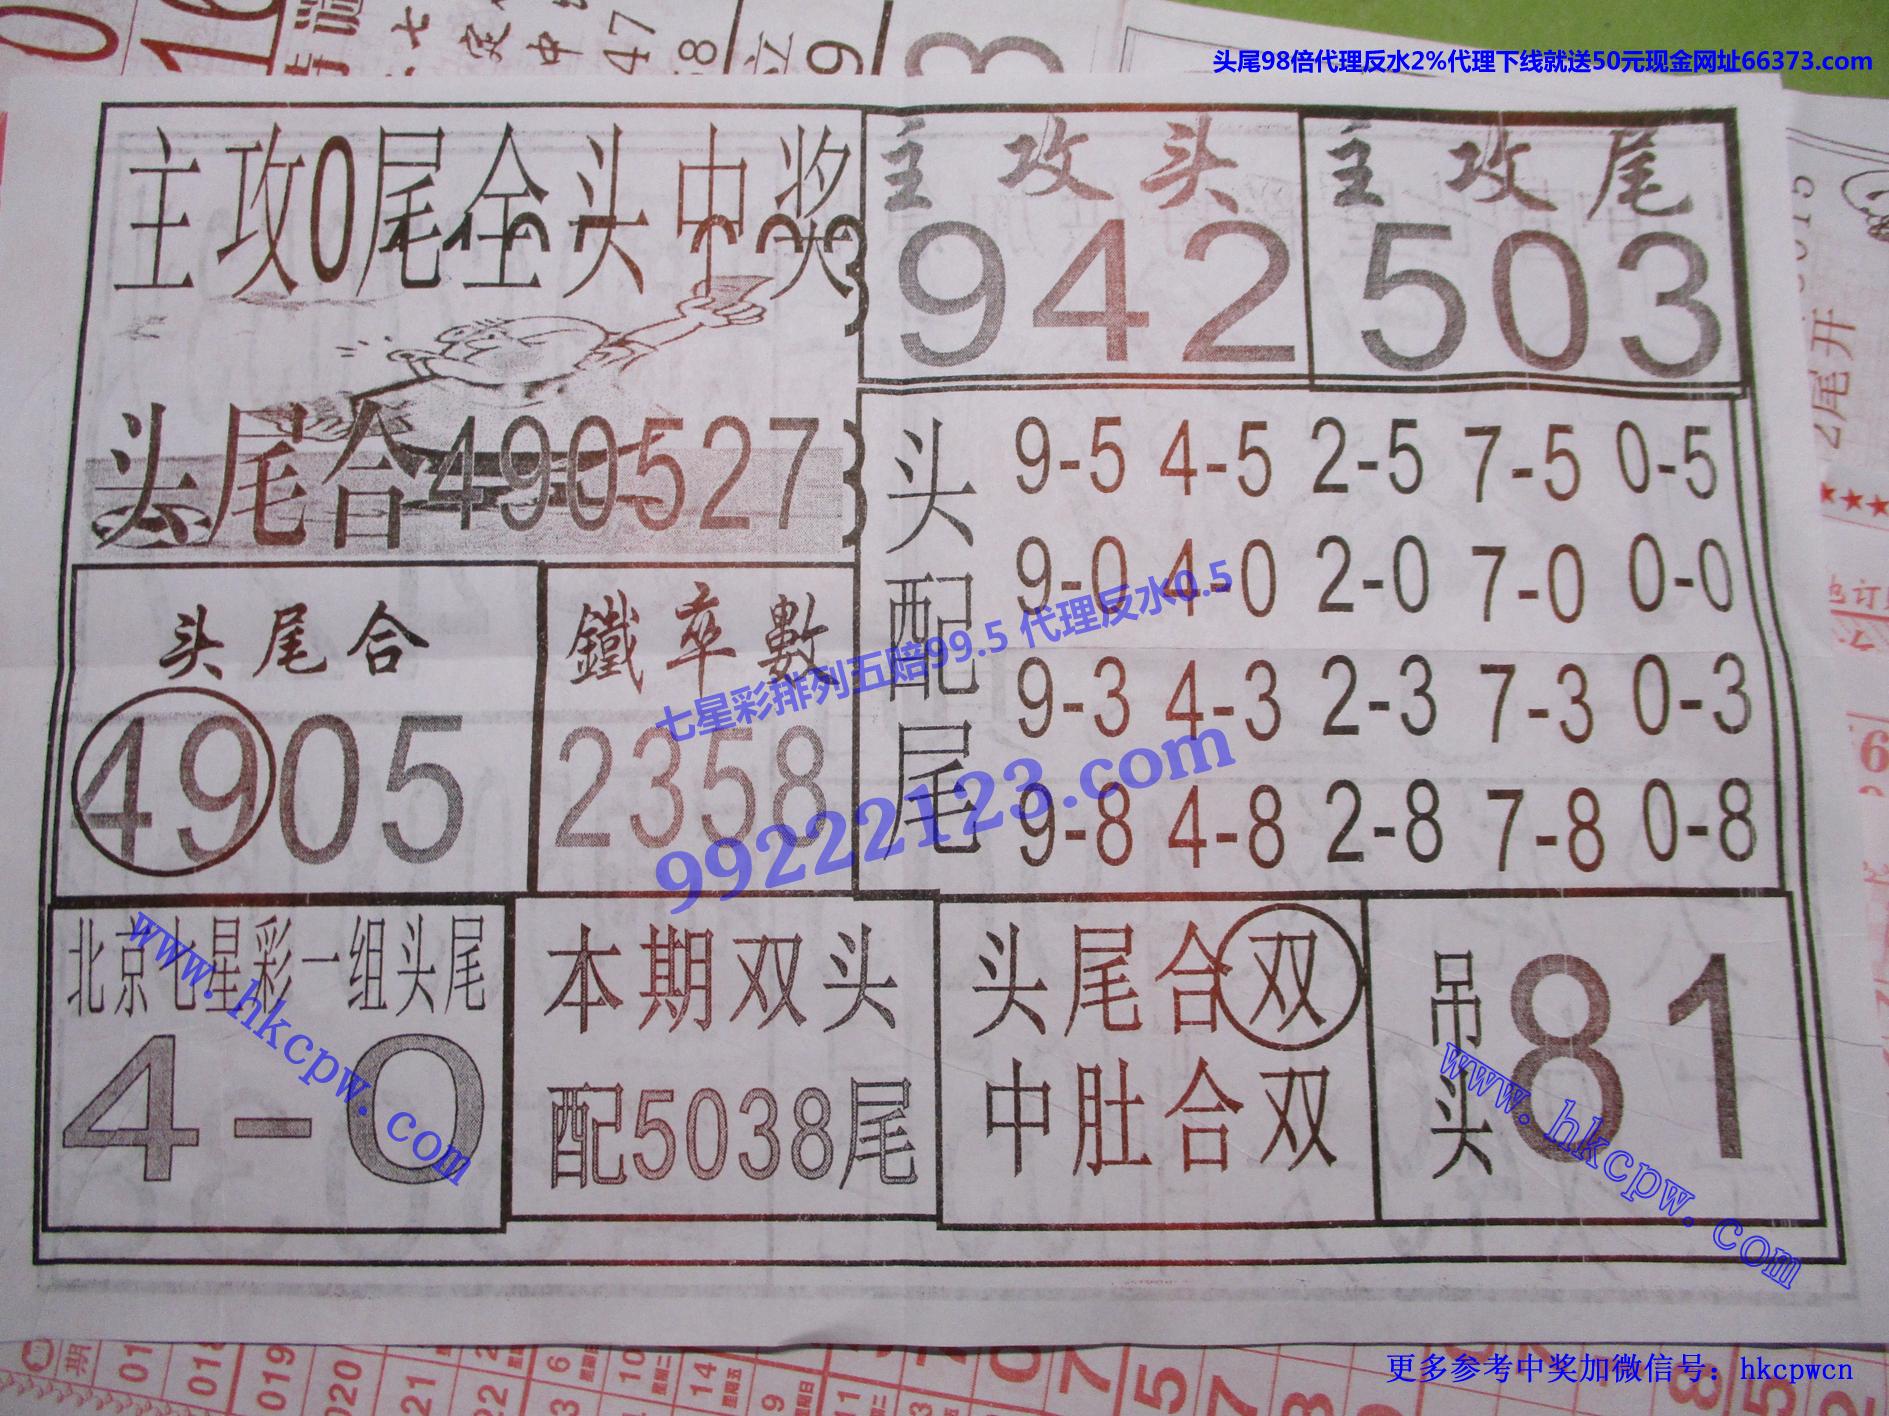 头尾98倍代理反水2%代理下线就送50元现金网址66373.com
主攻0尾全头中奖
主攻头
942
主攻尾
503
头尾合490527
头配尾
9-5 4-5 2-5 7-5 0-5
9-0 4-0 2-0 7-0 0-0
9-3 4-3 2-3 7-3 0-3
9-8 4-8 2-8 7-8 0-8
头尾合
4905
鐵率數
2358
七星彩排列五赔99.5 代理反水0.5
99222123.com
北京七星彩一组头尾
4-0
www.hkcpw.com
本期双头
配5038尾
头尾合双
中肚合双
吊头
81
www.hkcpw.com
2尾开
更多参考中奖加微信号：hkcpwcn